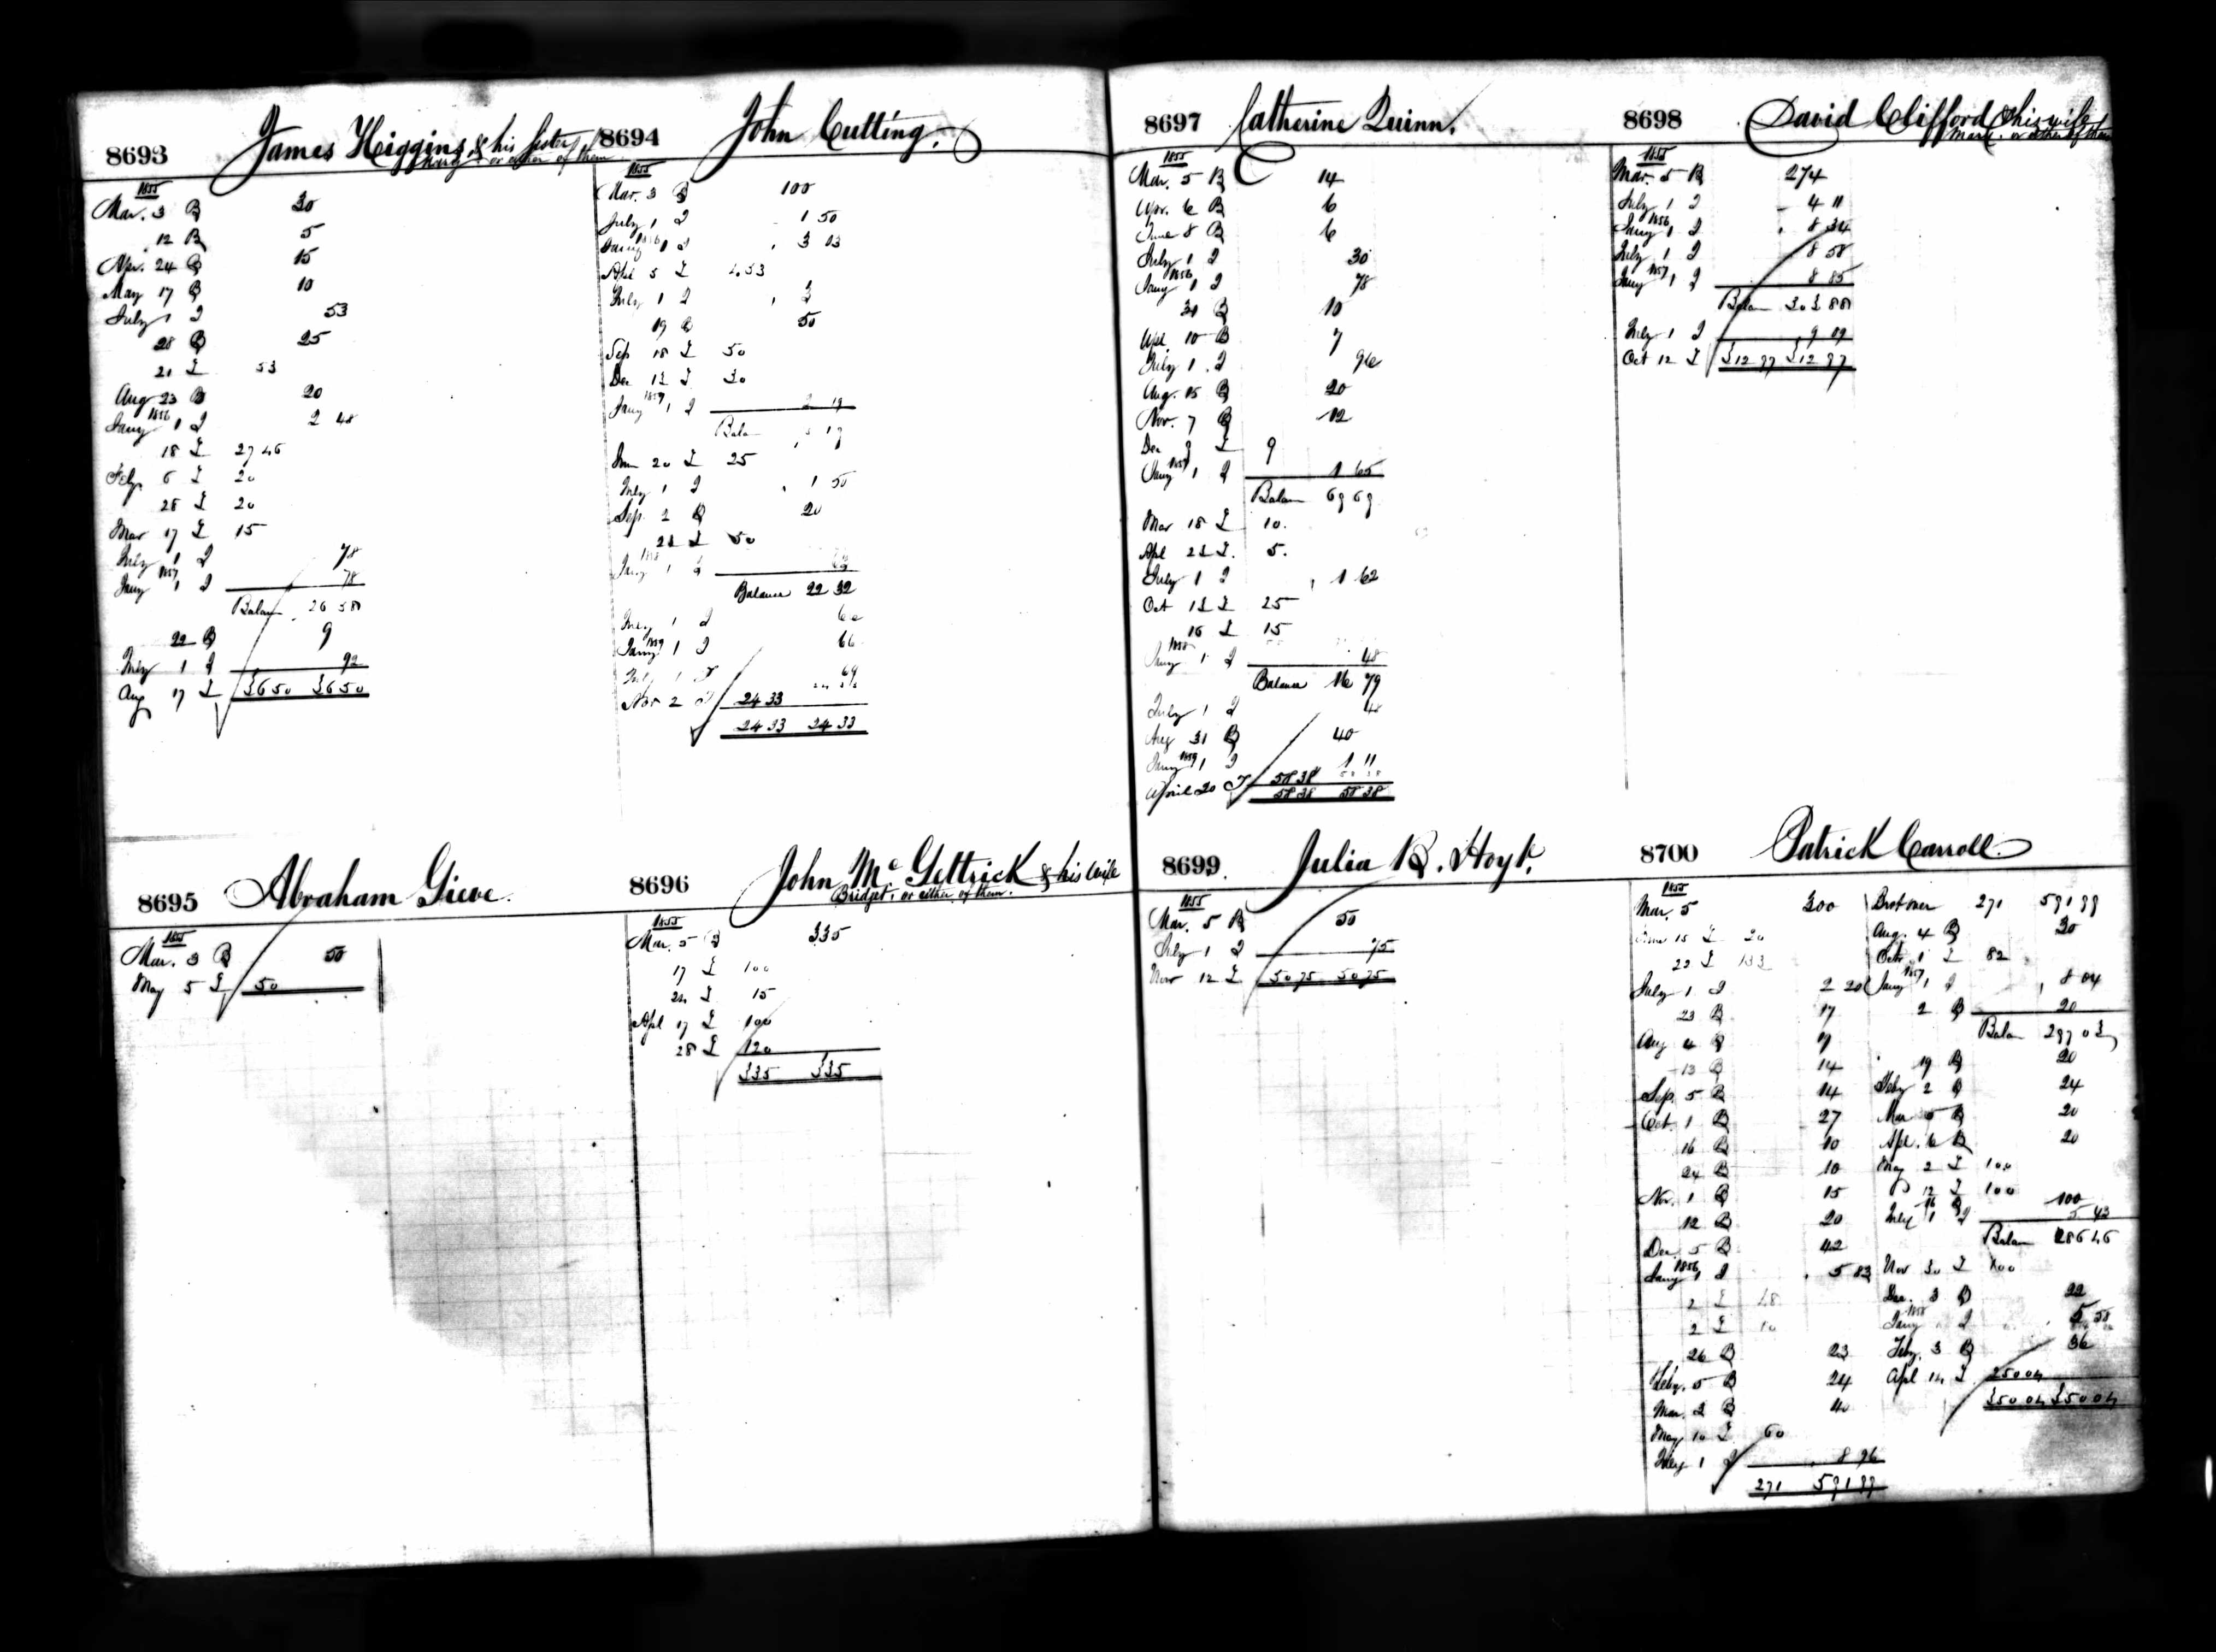 8693 James Higgins & his Sister
Mary or either of them
1855
Mar. 3 B 30
12 B 5
Apr. 24 B 15
May 17 B 10
July 1 I 53
28 B 25
21 £ 53
Aug 23 B 20
Jany 1856 1 I 2 48
18 £ 27 46
Feby 6 £ 20
28 £ 20
Mar 17 £ 15
July 1 I 78
Jany 1857 1 I 78
Balan 26 58
22 B 9
July 1 I 92
Aug 17 £ 36 50 36 50
8694 John Cutting.
1855
Mar. 3 B 100
July 1 I 1 50
Jany 1856 1 I 3 03
Apl 5 £ 4.53
July 1 I 3
19 B 50
Sep 18 £ 50
Dec 13 £ 30
Jany 1857 1 I 2 19
Balan
Jun 20 £ 25
July 1 I 1 50
Sep. 2 B 20
23 £ 50
Jany 1858 1 I
Balance 22 32
July 1 I 66
Jany 1859 1 I 66
July 1 I 69
Nov 2 I 24 33
24 33 24 33
8695 Abraham Gieve.
1855
Mar. 3 B 50
May 5 £ 50
8696 John McGettrick & his wife
Bridget, or either of them.
1855
Mar. 5 B 335
17 £ 100
24 £ 15
Apl 17 £ 100
28 £ 120
335 335
8697 Catherine Quinn.
1855
Mar. 5 B 14
Apr. 6 B 6
June 8 B 6
July 1 I 30
Jany 1856 1 I 78
31 B 10
Apl. 10 B 7
July 1 I 96
Aug. 15 B 20
Nov. 7 B 12
Dec 3 £ 9
Jany 1857 1 I 1 65
Balan 69 69
Mar 18 £ 10.
Apl 23 £. 5.
July 1 I 1 62
Oct 13 £ 25
16 £ 15
Jany 1858 1 I 48
Balance 16 79
July 1 I 48
Aug 31 B 40
Jany 1859 1 I 1 11
April 20 I 58 38
58 38 58 38
8698 David Clifford & his wife
Mary or either of them
1855
Mar. 5 B 274
July 1 I 4 11
Jany 1856 1 I 8 34
July 1 I 8 58
Jany 1857 1 I 8 85
Balan 303 88
July 1 I 9 09
Oct 12 £ 312 97 312 97
8699. Julia B. Hoyt.
1855
Mar. 5 B 50
July 1 I 75
Nov 12 £ 50 75 50 75
8700 Patrick Carroll.
1855
Mar. 5 300
June 15 £ 20
22 £ 133
July 1 I 2 20
23 B 17
Aug 4 B 9
13 B 14
Sep. 5 B 14
Oct. 1 B 27
16 B 10
24 B 10
Nov. 1 B 15
12 B 20
Dec. 5 B 42
Jany 1856 1 I 5 83
2 £ 48
2 £ 10
26 B 23
Feby. 5 B 24
Mar. 2 B 40
May 10 £ 60
July 1 I 8 96
271 591 99
Brot over 271 591 99
Aug. 4 B 30
Octr 1 £ 82
Jany 1857 1 I 8 04
2 B 20
Balan 297 03
19 B 20
Feby 2 B 24
Mar 5 B 20
Apl. 6 B 20
May 2 £ 100
12 £ 100
16 B 100
July 1 I 5 43
Balan 286 46
Nov 30 £ 100
Dec. 3 B 22
Jany 1858 I 5 58
Feby. 3 B 36
Apl 14 £ 250 04
350 04 350 04